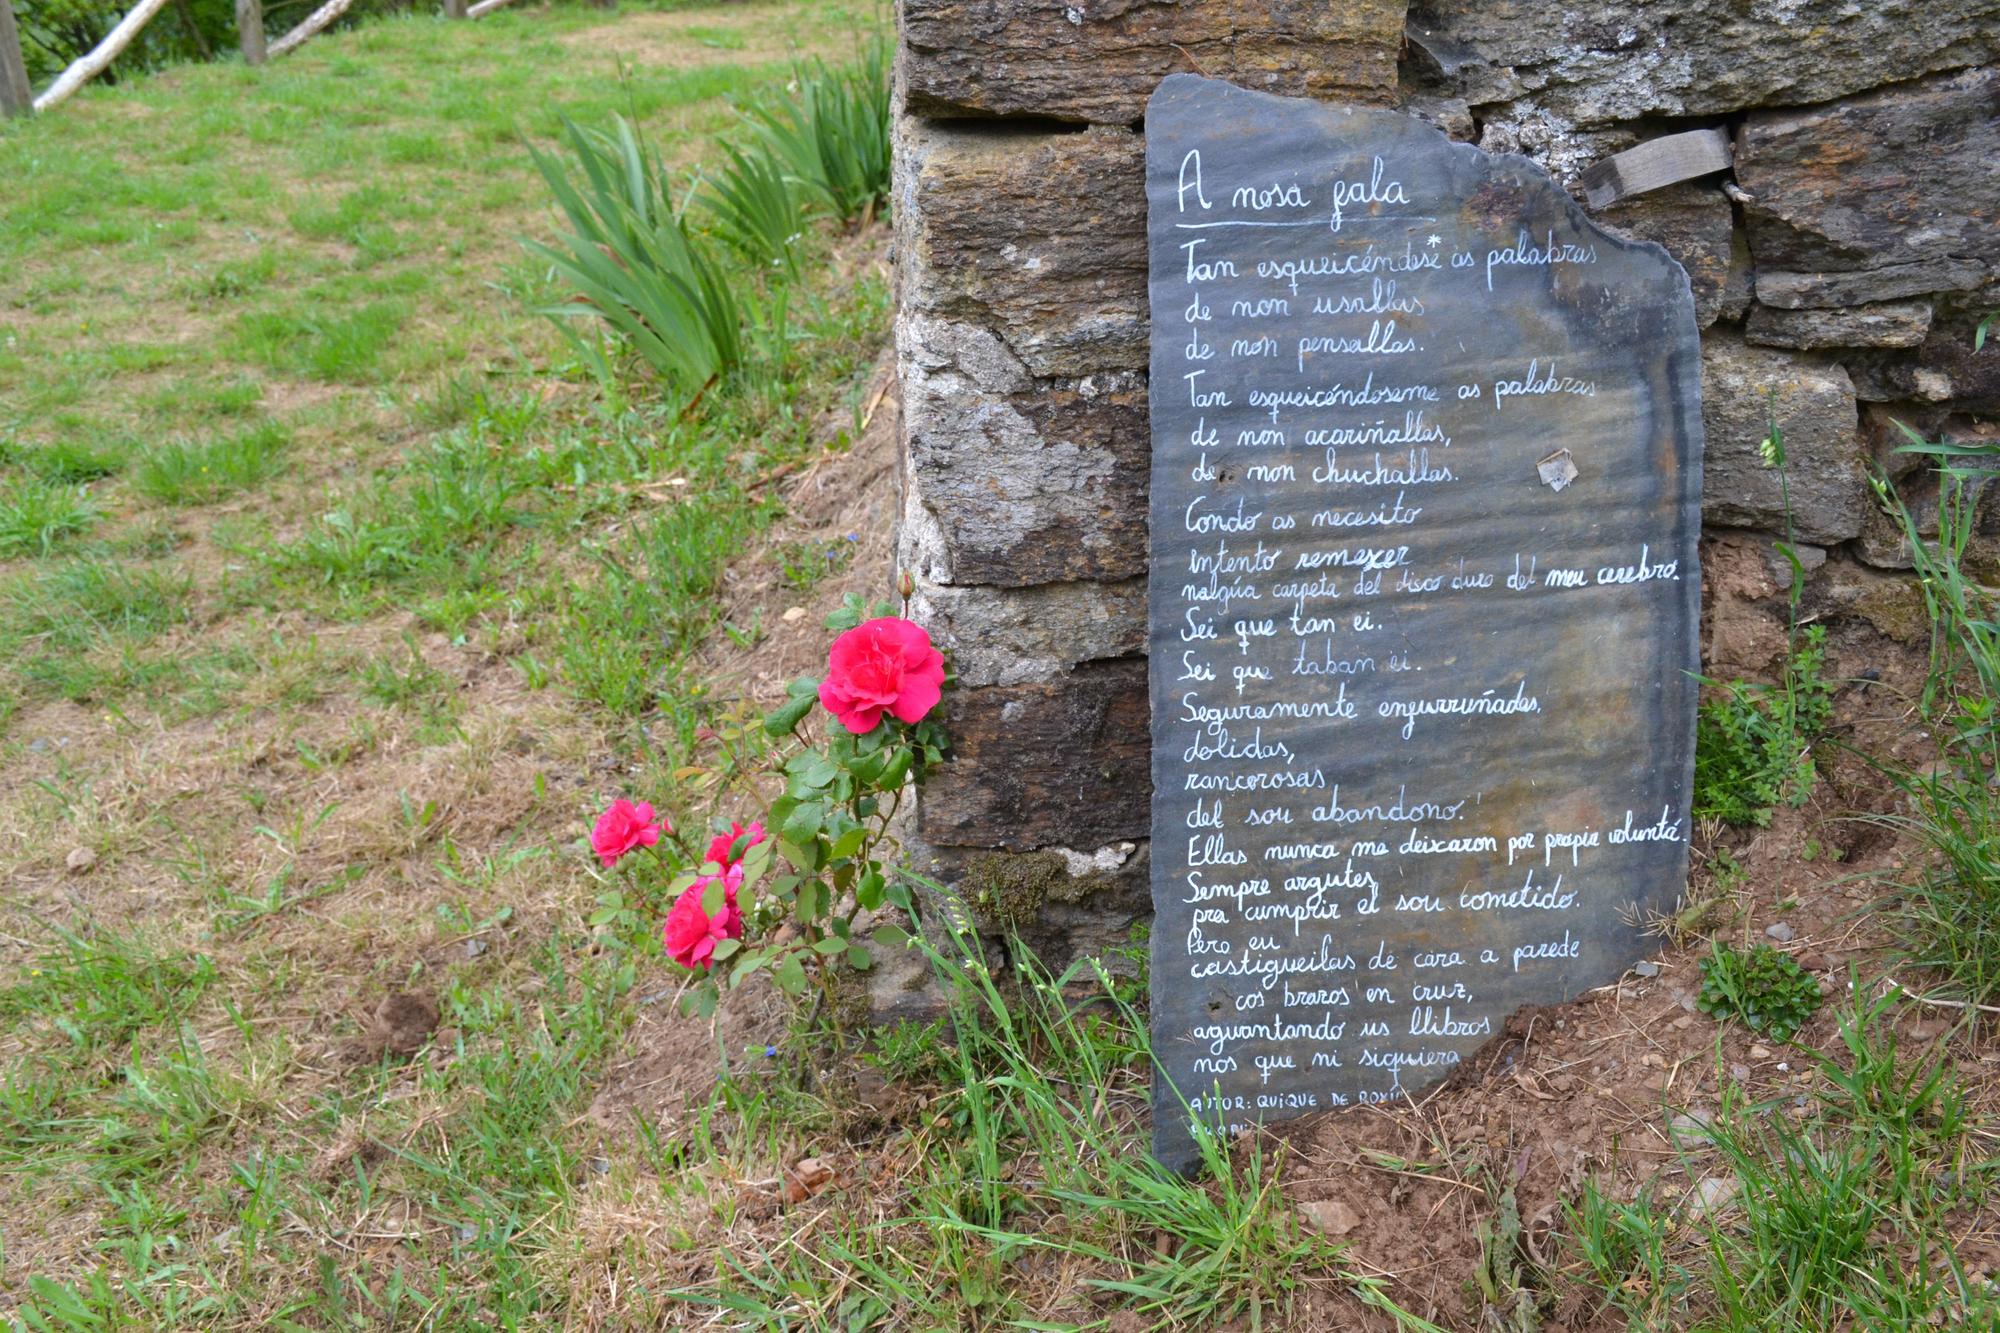 A nosa fala
Tan esqueicéndose* as palabras
de non usallas
de non pensallas.
Tan esqueicéndoseme as palabras
de non acariñallas,
de non chuchallas.
Condo as necesito
intento remexer
nalgúa carpeta del disco duro del meu cerebro.
Sei que tan ei.
Sei que taban ei.
Seguramente engurruñadas,
dolidas,
rancorosas
del sou abandono.
Ellas nunca me deixaron por propia voluntá.
Sempre argutes
pra cumprir el sou cometido.
Pero eu
castigueilas de cara a parede
cos brazos en cruz,
aguantando us llibros
nos que ni siquiera
AUTOR: QUIQUE DE ROXÍO